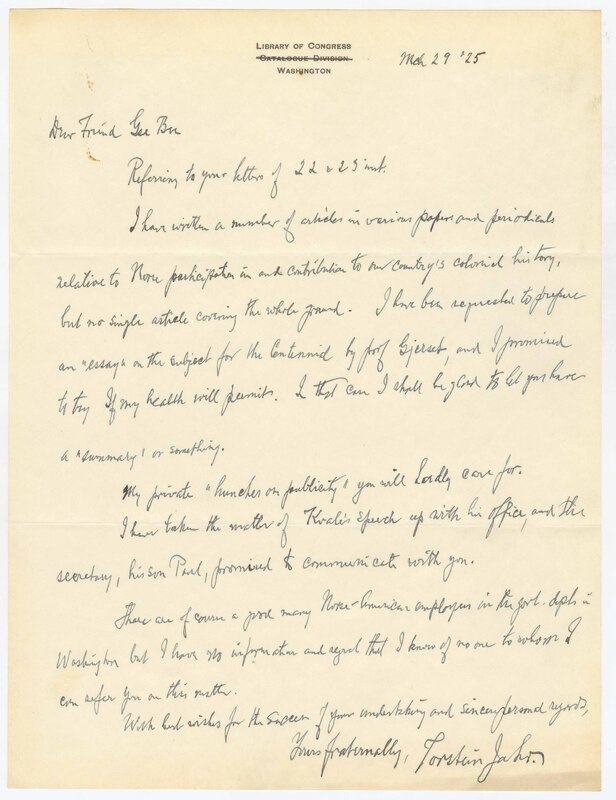 LIBRARY OF CONGRESS
CATALOGUE DIVISION
WASHINGTON
Mch 29 '25
Dear Friend Gee Bee
Referring to your letters of 22 & 23 inst.
I have written a number of articles in various papers and periodicals
relative to Norse participation in and contribution to our country's colonial history,
but no single article covering the whole ground. I have been requested to prepare
an "essay" on the subject for the Centennial by prof Gjerset, and I promised
to try if my health will permit. In that case I shall be glad to let you have
a "summary" or something.
My private "hunches on publicity" you will hardly care for.
I have taken the matter of Kvale's speech up with his office, and the
secretary, his son Paul, promised to communicate with you.
There are of course a good many Norse-American employees in the govt. depts in
Washington but I have no information and regret that I know of no one to whom I
can refer you on this matter.
With best wishes for the success of your undertaking and sincere personal regards,
Yours fraternally, Torstein Jahr.